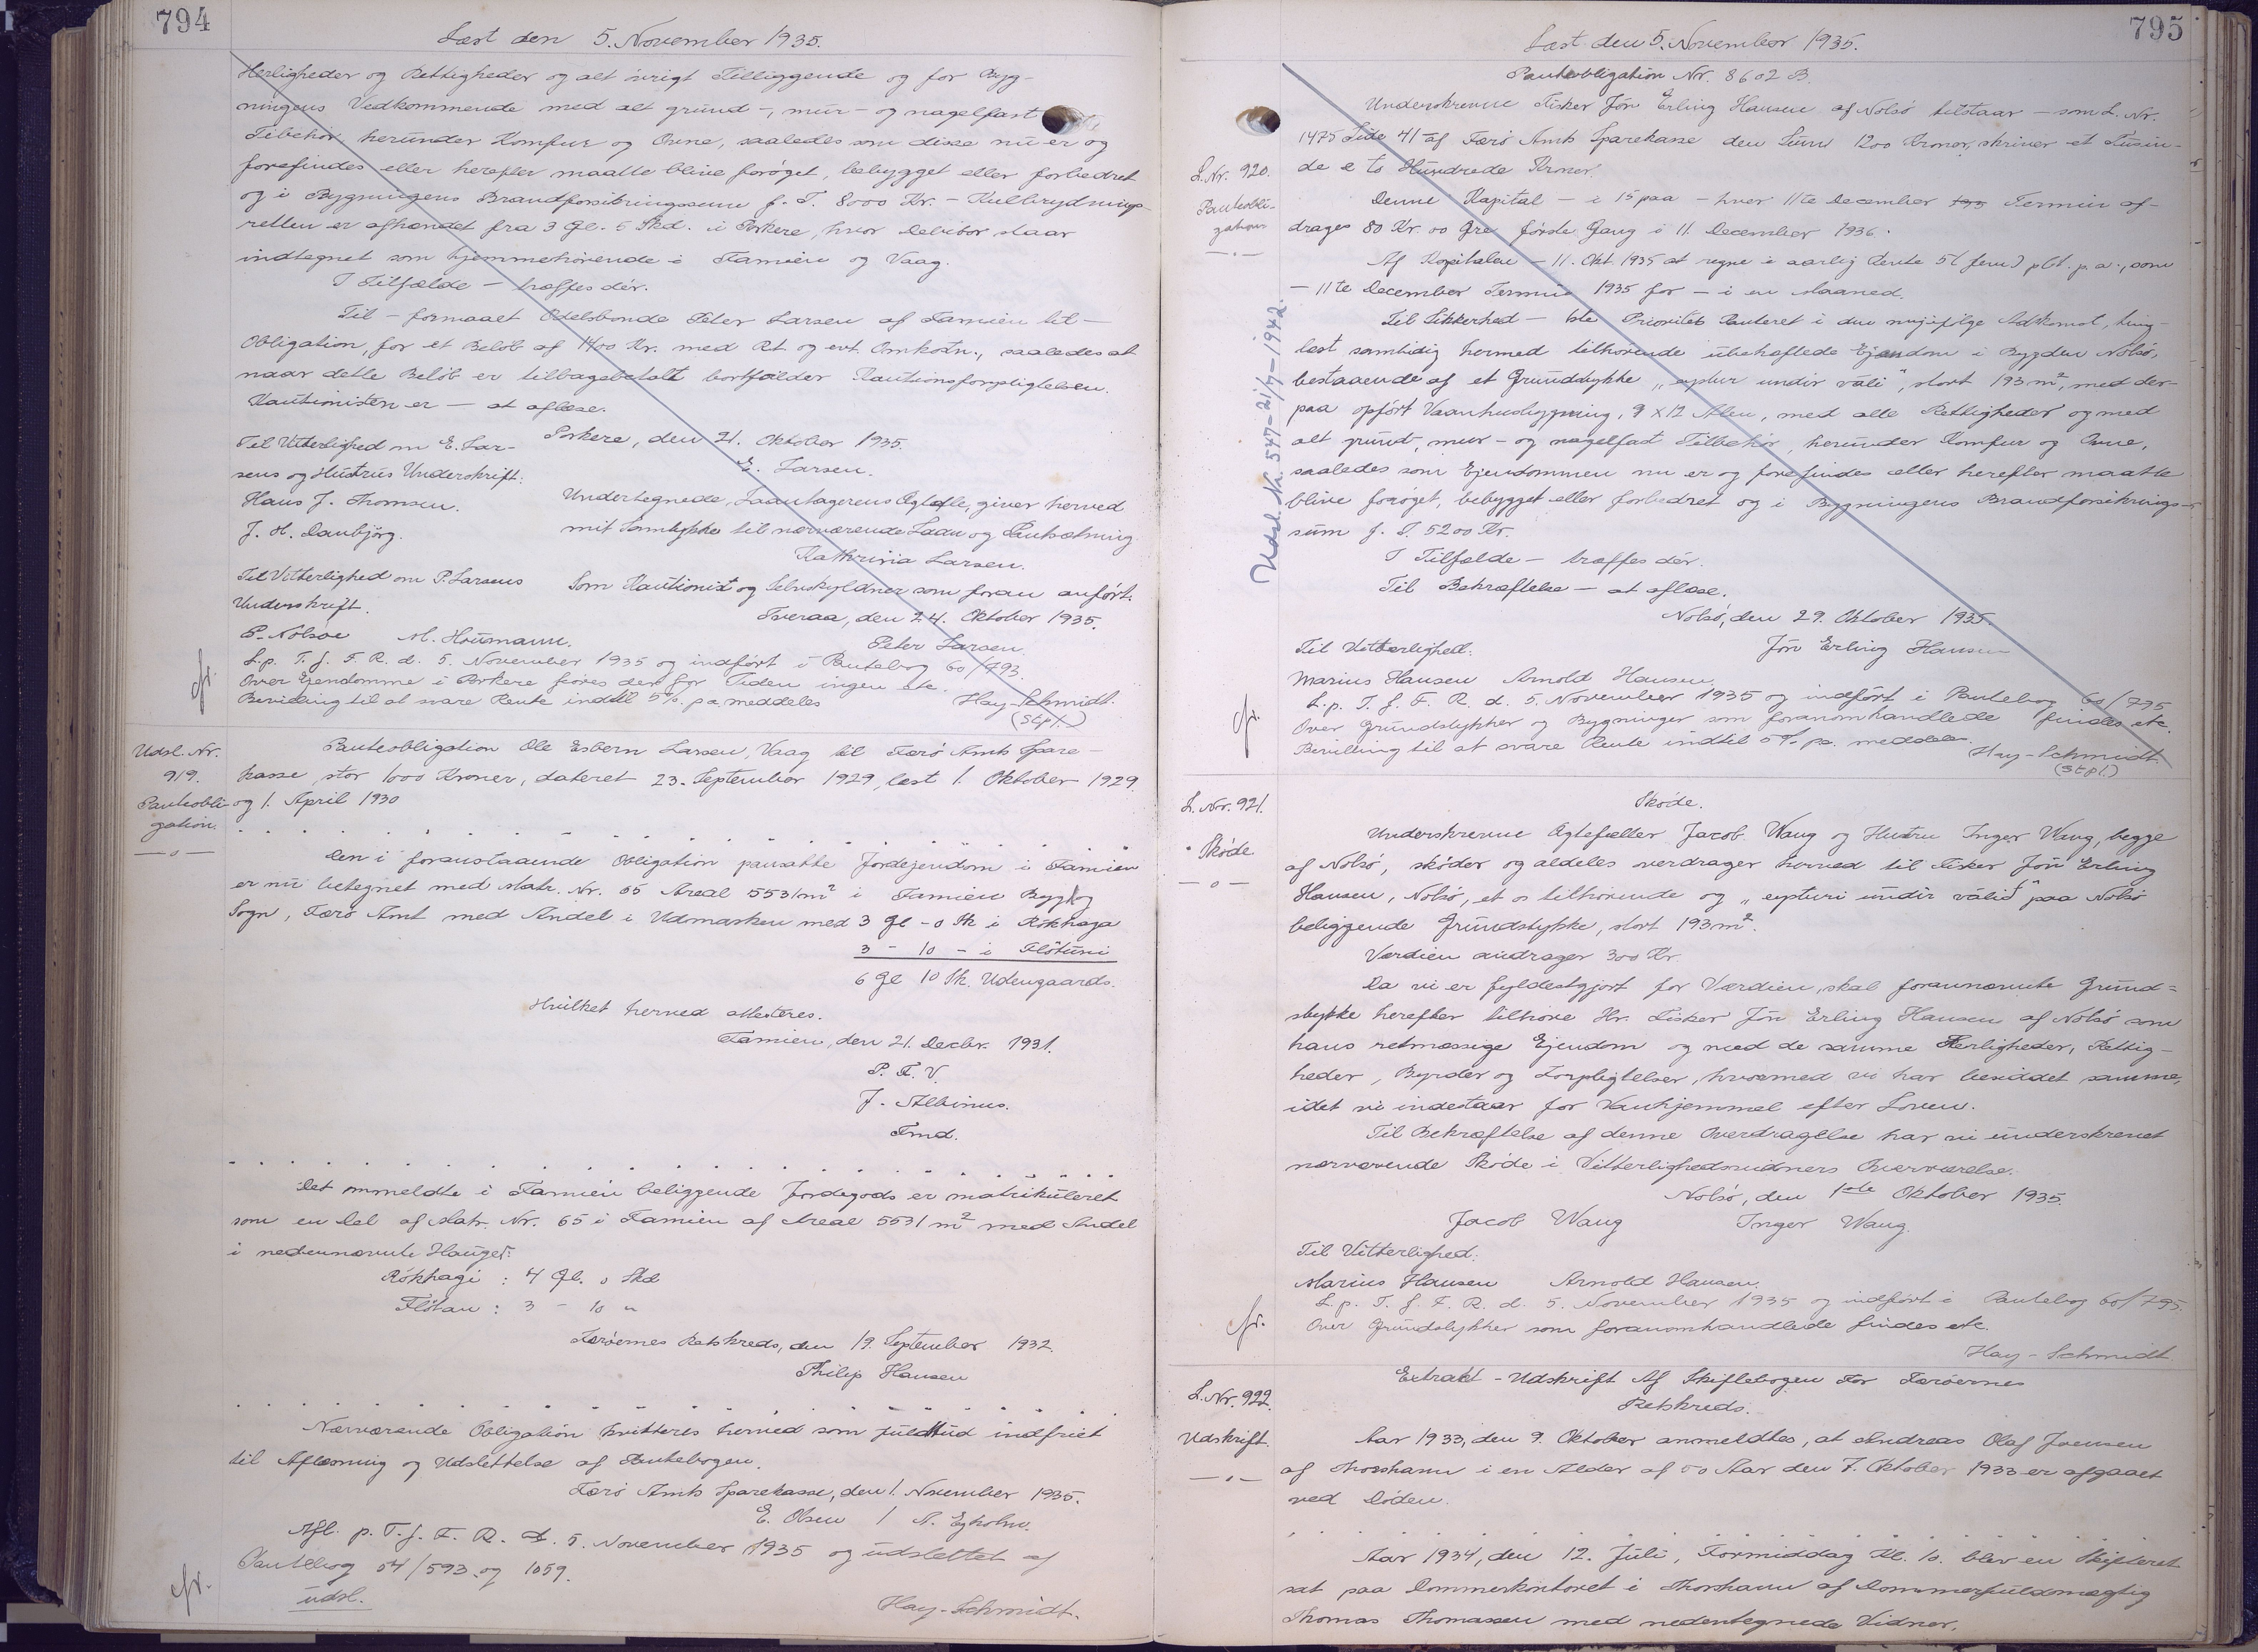 794
Læst den 5. November 1935.
Herligheder og Rettigheder og alt övrigt Tilliggende og for Byg-
ningens Vedkommende med alt grund-, mur- og nagelfast
Tilbehör, herunder Komfur og Ovne, saaledes som disse nu er og
forefindes eller herefter maatte blive forøget, bebygget eller forbedret
og i Bygningens Brandforsikringssum f. T. 8000 Kr. - Kulbrydnings-
retten er afhændet fra 3 Gl. 5 Skd. i Porkere, hvor Debitor staar
indtegnet som hjemmehörende i Famien og Vaag.
I Tilfælde - træffes dér.
Til - formaaet Odelsbonde Peter Larsen af Famien til -
Obligation, for et Belöb af 1400 Kr. med Rt. og evt. Omkostn., saaledes at
naar dette Belöb er tilbagebetalt bortfalder Kautionsforpligtelsen.
Kautionisten er - at aflæse.
Porkere, den 21. Oktober 1935.
E. Larsen.
Til Vitterlighed om E. Lar-
sens og Hustrus Underskrift:
Hans J. Thomsen.
J. H. Danbjörg.
Undertegnede, Laantagerens Ægtefælle, giver herved
mit Samtykke til nærværende Laan og Pantsætning
Kathrina Larsen.
Til Vitterlighed om P. Larsens
Underskrift.
Som Kautionist og Selvskyldner som foran anført:
Tveraa, den 24. Oktober 1935.
P. Nolsøe M. Houmann.
Peter Larsen.
L. p. T. f. F. R. d. 5. November 1935 og indfört i Pantebog 60/793.
Over Ejendomme i Porkere föres der for Tiden ingen etc.
Bevilling til at svare Rente indtil 5% p.a. meddeles
Hay-Schmidt.
(Stpl.)
cfr.
Udsl. Nr.
919.
Panteobli-
gation.
Panteobligation Ole Esbern Larsen, Vaag til Færö Amts Spare-
kasse, stor 1000 Kroner, dateret 23. September 1929, læst 1. Oktober 1929
og 1. April 1930
Den i foranstaaende Obligation pansatte Jordejendom i Famien
er nu betegnet med Matr. Nr. 65 Areal 5531 m² i Famien Bygd og
Sogn, Færö Amt med Andel i Udmarken med 3 Gl - 0 Sk i Rókhaga
3 - 10 - i Flötuni
6 Gl 10 Sk. Udengaards.
Hvilket herved attesteres.
Famien, den 21. Decbr. 1931.
P. F. V.
J. Albinus.
Fmd.
Det ommeldte i Famien beliggende Jordegods er matrikuleret
som en Del af Matr. Nr. 65 i Famien af Areal 5531 m² med Andel
i nedennævnte Hauger:
Rókhagi : 4 Gl. 0 Skd
Flötan : 3 - 10 "
Færöernes Retskreds, den 19. September 1932.
Philip Hansen
Nærværende Obligation kvitteres herved som fuldtud indfriet
til Aflæsning og Udslettelse af Pantebogen.
Færö Amts Sparekasse, den 1. November 1935.
E. Olsen / A. Egholm.
Afl. p. T. f. F. R. d. 5. November 1935 og udslettet af
Pantebog 54/593 og 1059.
udsl.
Hay-Schmidt.
cfr.
795
Læst den 5. November 1935.
Panteobligation Nr. 8602 B.
L. Nr. 920.
Panteobli-
gation
Underskrevne Fisker Jón Erling Hansen af Nolsö tilstaar - som L. Nr.
1475 Side 41 - af Færö Amts Sparekasse den Sum 1200 Kroner, skriver et Tusin-
de to Hundrede Kroner.
Denne Kapital - i 15 paa - hver 11te December Termin af-
drages 80 Kr. 00 Øre förste Gang i 11. December 1936.
Af Kapitalen - 11. Okt. 1935 at regne i aarlig Rente 5 (fem) pCt. p. a., som
- 11te December Termin 1935 for - i en Maaned.
Til Sikkerhed - 1ste Prioritets Panteret i den mig ifølge Adkomst, ting-
læst samtidig hermed tilhörende ubehæftede Ejendom i Bygden Nolsö,
bestaaende af et Grundstykke "eystur undir váli", stort 193 m², med der-
paa opfört Vaanhusbygning, 9 x 12 Alen, med alle Rettigheder og med
alt grund-, mur- og nagelfast Tilbehör, herunder Komfur og Ovne,
saaledes som Ejendommen nu er og forefindes eller herefter maatte
blive forøget, bebygget eller forbedret og i Bygningens Brandforsikrings-
sum f. T. 5200 Kr.
I Tilfælde - træffes dér.
Til Bekræftelse - at aflæse.
Nolsö, den 29. Oktober 1935.
Til Vitterlighed:
Jón Erling Hansen
Marius Hansen Arnold Hansen.
L. p. T. f. F. R. d. 5. November 1935 og indfört i Pantebog 60/795
Over Grundstykker og Bygninger som foranomhandlede findes etc.
Bevilling til at svare Rente indtil 5% p.a. meddeles.
Hay-Schmidt.
(Stpl.)
cfr.
Udsl. Nr. 547 - 21/7 - 1942.
L. Nr. 921.
Sköde
Sköde.
Underskrevne Ægtefæller Jacob Waug og Hustru Inger Waug, begge
af Nolsö, sköder og aldeles overdrager herved til Fisker Jón Erling
Hansen, Nolsö, et os tilhörende og "eysturi undir váli" paa Nolsö
beliggende Grundstykke, stort 193 m².
Værdien andrager 300 Kr.
Da vi er fyldestgjort for Værdien, skal forannævnte Grund-
stykke herefter tilhöre Hr. Fisker Jón Erling Hansen af Nolsö som
hans retmæssige Ejendom og med de samme Herligheder, Rettig-
heder, Byrder og Forpligtelser, hvormed vi har besiddet samme,
idet vi indestaar for Vanhjemmel efter Loven.
Til Bekræftelse af denne Overdragelse har vi underskrevet
nærværende Sköde i Vitterlighedsvidners Overværelse.
Nolsö, den 1ste Oktober 1935.
Jacob Waug Inger Waug.
Til Vitterlighed:
Marius Hansen Arnold Hansen.
L. p. T. f. F. R. d. 5. November 1935 og indfört i Pantebog 60/795.
Over Grundstykker som foranomhandlede findes etc.
Hay-Schmidt
cfr.
L. Nr. 922.
Udskrift.
Extrakt-Udskrift Af Skiftebogen For Færöernes
Retskreds.
Aar 1933, den 9. Oktober anmeldtes, at Andreas Olaf Joensen
af Thorshavn i en Alder af 50 Aar den 7. Oktober 1933 er afgaaet
ved Döden.
Aar 1934, den 12. Juli, Formiddag Kl. 10. blev en Skifteret
sat paa Dommerkontoret i Thorshavn af Dommerfuldmægtig
Thomas Thomassen med nedentegnede Vidner.